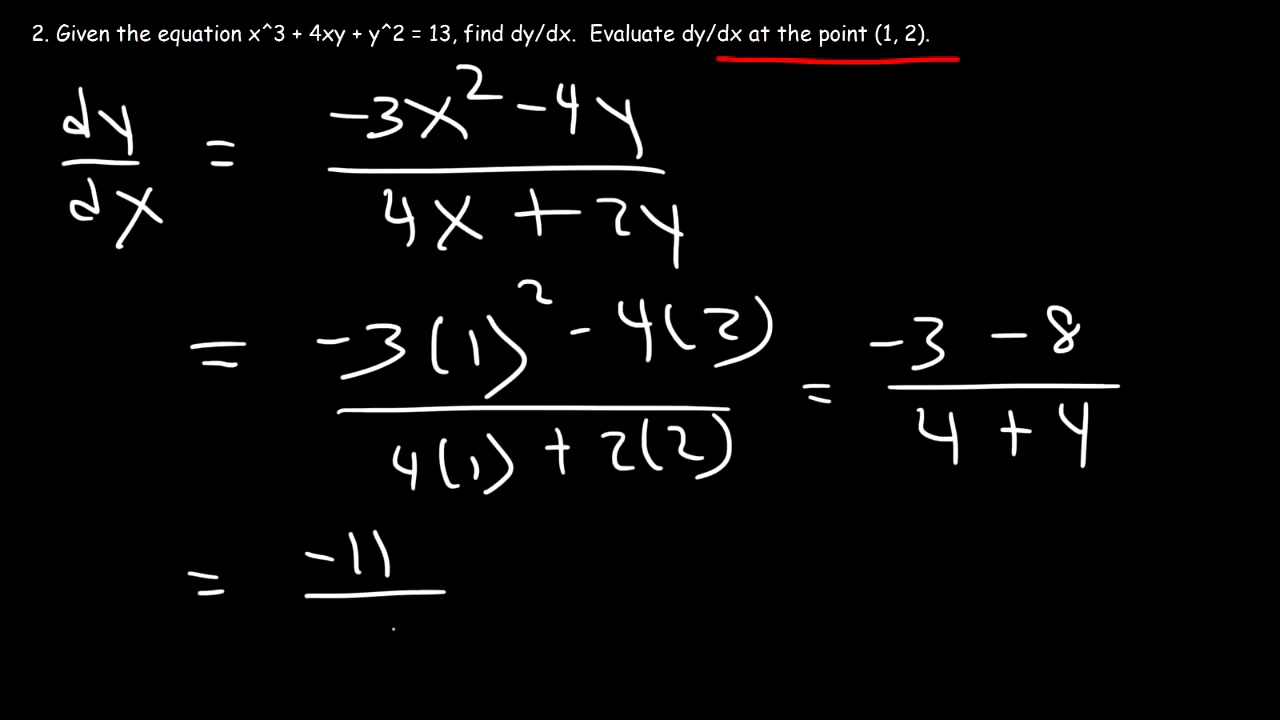 2. Given the equation x^3 + 4xy + y^2 = 13, find dy/dx. Evaluate dy/dx at the point (1, 2).
dy/dx = (-3x² - 4y)/(4x + 2y)
= (-3(1)² - 4(2))/(4(1) + 2(2)) = (-3 - 8)/(4 + 4)
= -11/